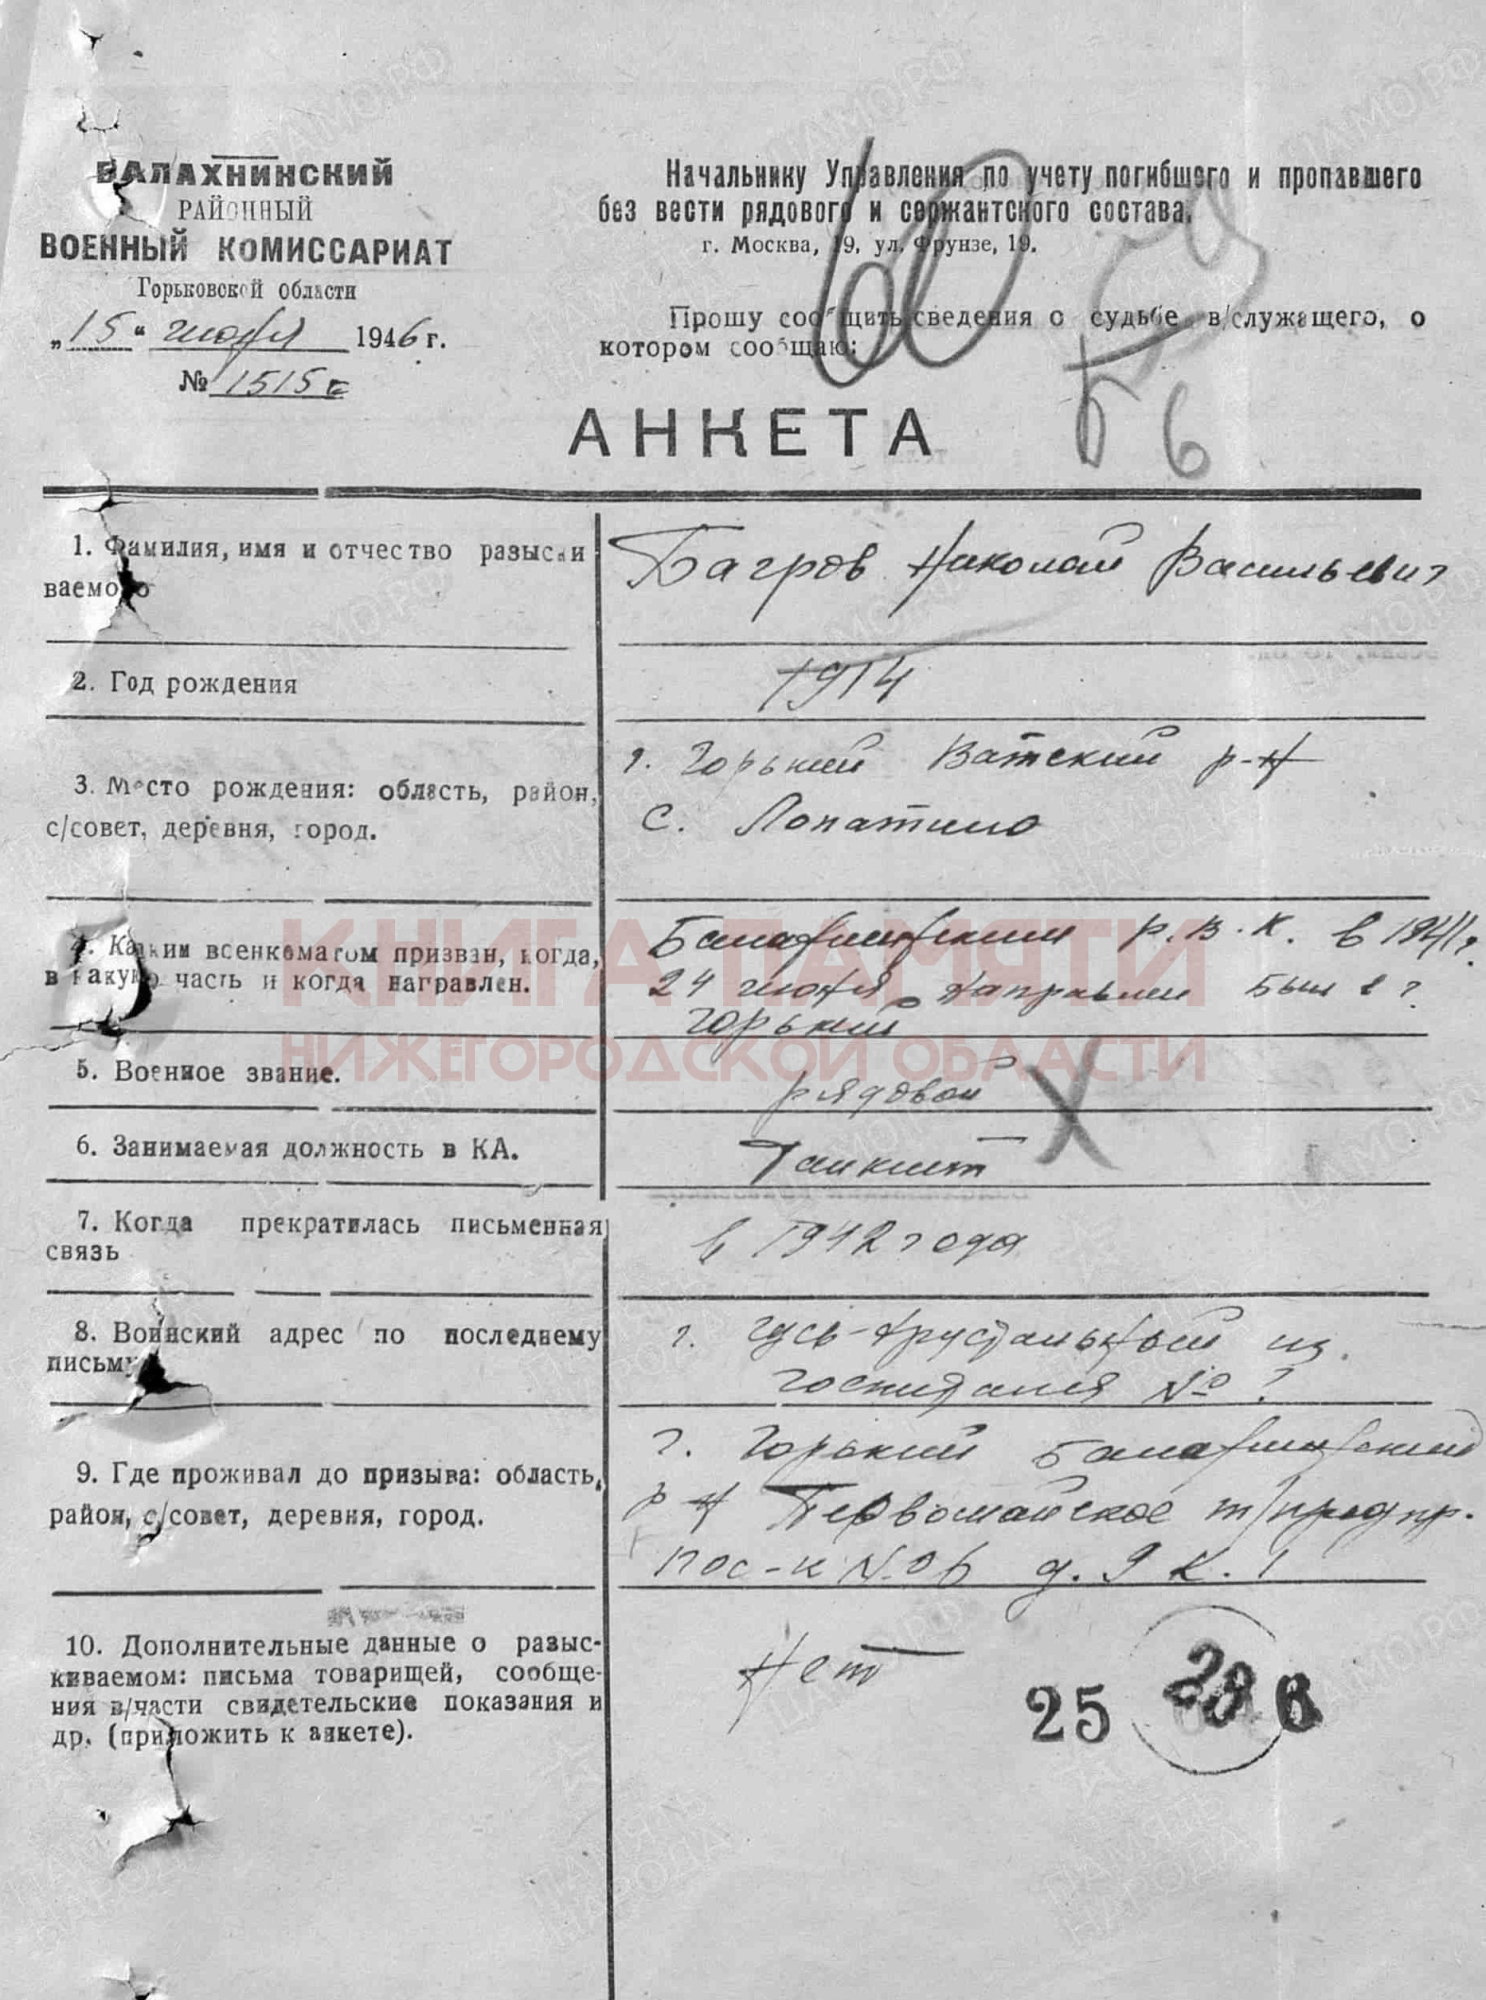 БАЛАХНИНСКИЙ
РАЙОННЫЙ
ВОЕННЫЙ КОМИССАРИАТ
Горьковской области
„15“ июня 1946 г.
№ 1515с
Начальнику Управления по учету погибшего и пропавшего
без вести рядового и сержантского состава.
г. Москва, 19, ул. Фрунзе, 19.
Прошу сообщить сведения о судьбе в/служащего, о
котором сообщаю:
60
56
АНКЕТА
1. Фамилия, имя и отчество разыски
ваемого
Багров Николай Васильевич
2. Год рождения
1914
3. Место рождения: область, район,
с/совет, деревня, город.
г. Горький Ватский р-н
с. Лопатино
4. Каким военкоматом призван, когда,
в какую часть и когда направлен.
Балахнинским р.в.к. в 1941 г.
24 июня направлен был в г
Горький
5. Военное звание.
рядовой
6. Занимаемая должность в КА.
Танкист
7. Когда прекратилась письменная
связь
в 1942 года
8. Воинский адрес по последнему
письму
г. Гусь-Хрустальный из
госпиталя № ?
9. Где проживал до призыва: область,
район, с/совет, деревня, город.
г. Горький Балахнинский
р-н Первомайское т/предпр.
пос-к № 6 д. 9 к. 1
10. Дополнительные данные о разыс-
киваемом: письма товарищей, сообще-
ния в/части свидетельские показания и
др. (приложить к анкете).
Нет
25
КНИГА ПАМЯТИ
НИЖЕГОРОДСКОЙ ОБЛАСТИ